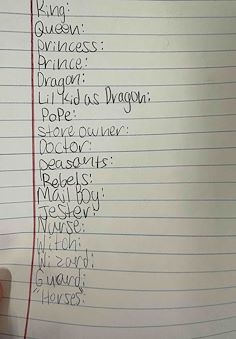 King:
Queen:
Princess:
Prince:
Dragon:
Lil kid as Dragon:
Pope:
store owner:
Doctor:
peasants:
Rebels:
Mail boy:
Jester:
Nurse:
Witch:
Wizard:
Guard:
"Horses":